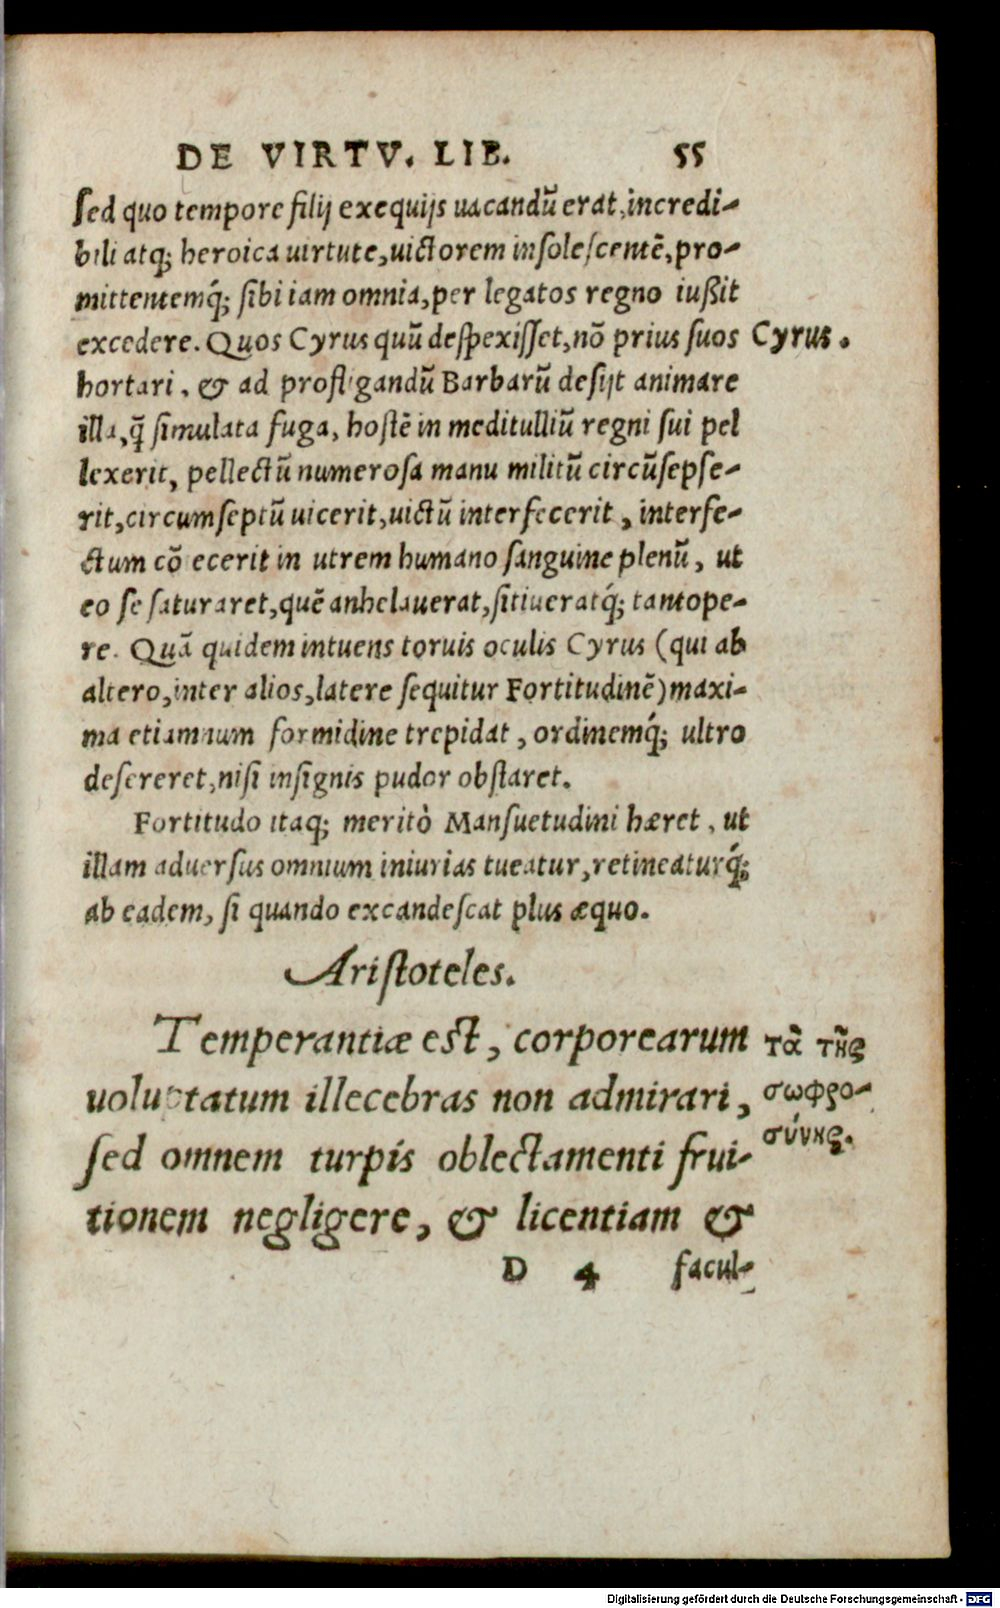 DE VIRTV. LIB. 55
sed quo tempore filij exequijs uacandū erat, incredi-
bili atq; heroica uirtute, uictorem insolescentē, pro-
mittentemq́; sibi iam omnia, per legatos regno iußit
excedere. Quos Cyrus quū despexisset, nō prius suos Cyrus.
hortari, & ad profligandū Barbarū desijt animare
illa, q̄ simulata fuga, hostē in meditulliū regni sui pel
lexerit, pellectū numerosa manu militū circūsepse-
rit, circumseptū uicerit, uictū interfecerit, interfe-
ctum cōiecerit in utrem humano sanguine plenū, ut
eo se saturaret, quē anhelauerat, sitiueratq́; tantope-
re. Quā quidem intuens toruis oculis Cyrus (qui ab
altero, inter alios, latere sequitur Fortitudinē) maxi-
ma etiamnum formidine trepidat, ordinemq́; ultro
desereret, nisi insignis pudor obstaret.
Fortitudo itaq; meritò Mansuetudini hæret, ut
illam aduersus omnium iniurias tueatur, retineaturq́;
ab eadem, si quando excandescat plus æquo.
Aristoteles.
Temperantiæ est, corporearum τὰ τῆς
uoluptatum illecebras non admirari, σωφρο-
sed omnem turpis oblectamenti frui- σύνης.
tionem negligere, & licentiam &
D 4 facul-
Digitalisierung gefördert durch die Deutsche Forschungsgemeinschaft - DFG